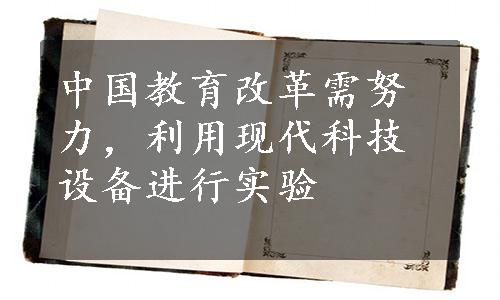 中国教育改革需努
力，利用现代科技
设备进行实验